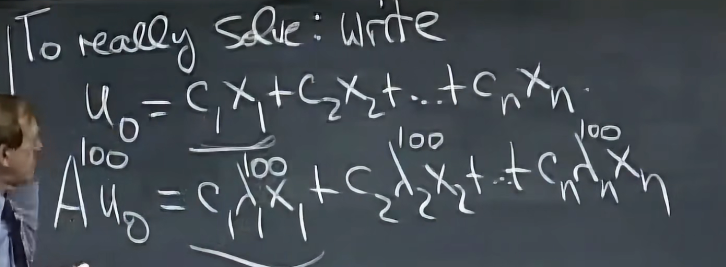 To really solve: write
u₀ = c₁x₁ + c₂x₂ + ... + cₙxₙ.
A¹⁰⁰u₀ = c₁λ₁¹⁰⁰x₁ + c₂λ₂¹⁰⁰x₂ + ... + cₙλₙ¹⁰⁰xₙ